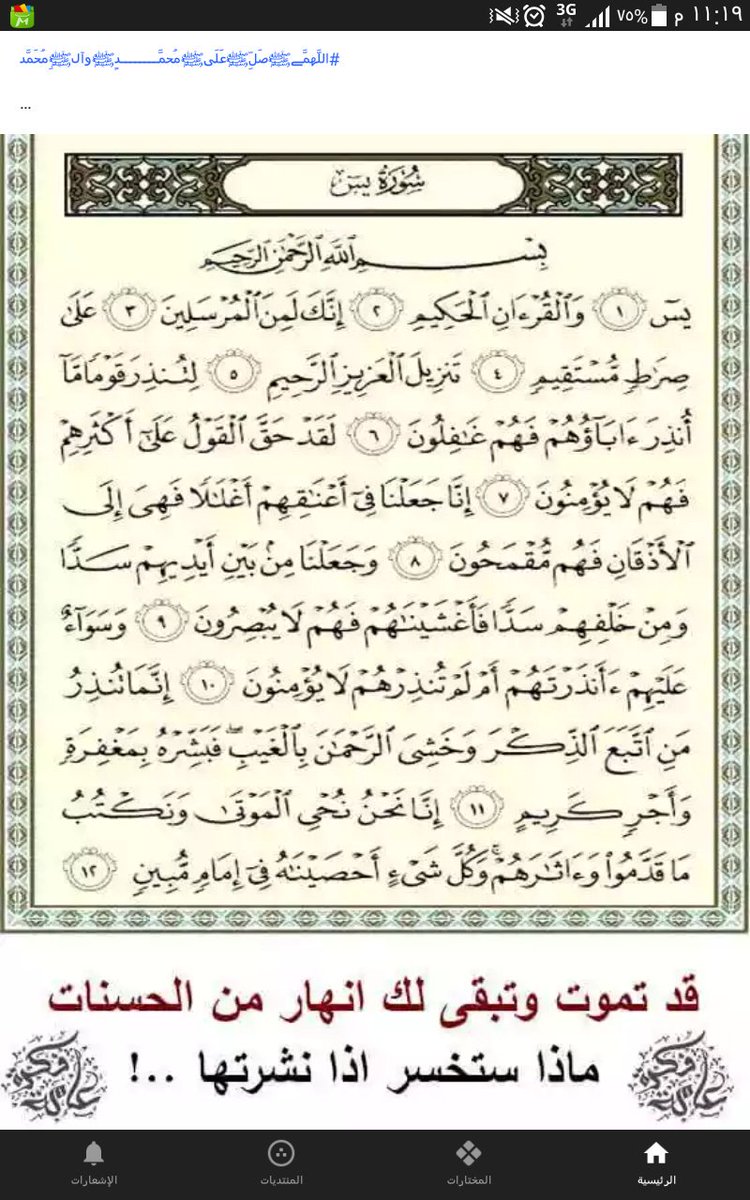 ١١:١٩ م ٧٥% 3G
#اللَّهمَّےﷺصَلِّﷺعَلَىﷺمُحمَّــــــــدٍﷺوآلﷺمُحَمَّد
...
سُورَةُ يسٓ
بِسْمِ ٱللَّهِ ٱلرَّحْمَٰنِ ٱلرَّحِيمِ
يسٓ ١ وَٱلْقُرْءَانِ ٱلْحَكِيمِ ٢ إِنَّكَ لَمِنَ ٱلْمُرْسَلِينَ ٣ عَلَىٰ
صِرَٰطٍ مُّسْتَقِيمٍ ٤ تَنزِيلَ ٱلْعَزِيزِ ٱلرَّحِيمِ ٥ لِتُنذِرَ قَوْمًا مَّآ
أُنذِرَ ءَابَآؤُهُمْ فَهُمْ غَٰفِلُونَ ٦ لَقَدْ حَقَّ ٱلْقَوْلُ عَلَىٰٓ أَكْثَرِهِمْ
فَهُمْ لَا يُؤْمِنُونَ ٧ إِنَّا جَعَلْنَا فِىٓ أَعْنَٰقِهِمْ أَغْلَٰلًا فَهِىَ إِلَى
ٱلْأَذْقَانِ فَهُم مُّقْمَحُونَ ٨ وَجَعَلْنَا مِنۢ بَيْنِ أَيْدِيهِمْ سَدًّا
وَمِنْ خَلْفِهِمْ سَدًّا فَأَغْشَيْنَٰهُمْ فَهُمْ لَا يُبْصِرُونَ ٩ وَسَوَآءٌ
عَلَيْهِمْ ءَأَنذَرْتَهُمْ أَمْ لَمْ تُنذِرْهُمْ لَا يُؤْمِنُونَ ١٠ إِنَّمَا تُنذِرُ
مَنِ ٱتَّبَعَ ٱلذِّكْرَ وَخَشِىَ ٱلرَّحْمَٰنَ بِٱلْغَيْبِ ۖ فَبَشِّرْهُ بِمَغْفِرَةٍ
وَأَجْرٍ كَرِيمٍ ١١ إِنَّا نَحْنُ نُحْىِ ٱلْمَوْتَىٰ وَنَكْتُبُ
مَا قَدَّمُوا۟ وَءَاثَٰرَهُمْ ۚ وَكُلَّ شَىْءٍ أَحْصَيْنَٰهُ فِىٓ إِمَامٍ مُّبِينٍ ١٢
قد تموت وتبقى لك انهار من الحسنات
ماذا ستخسر اذا نشرتها ..!
الرئيسية
المختارات
المنتديات
الإشعارات